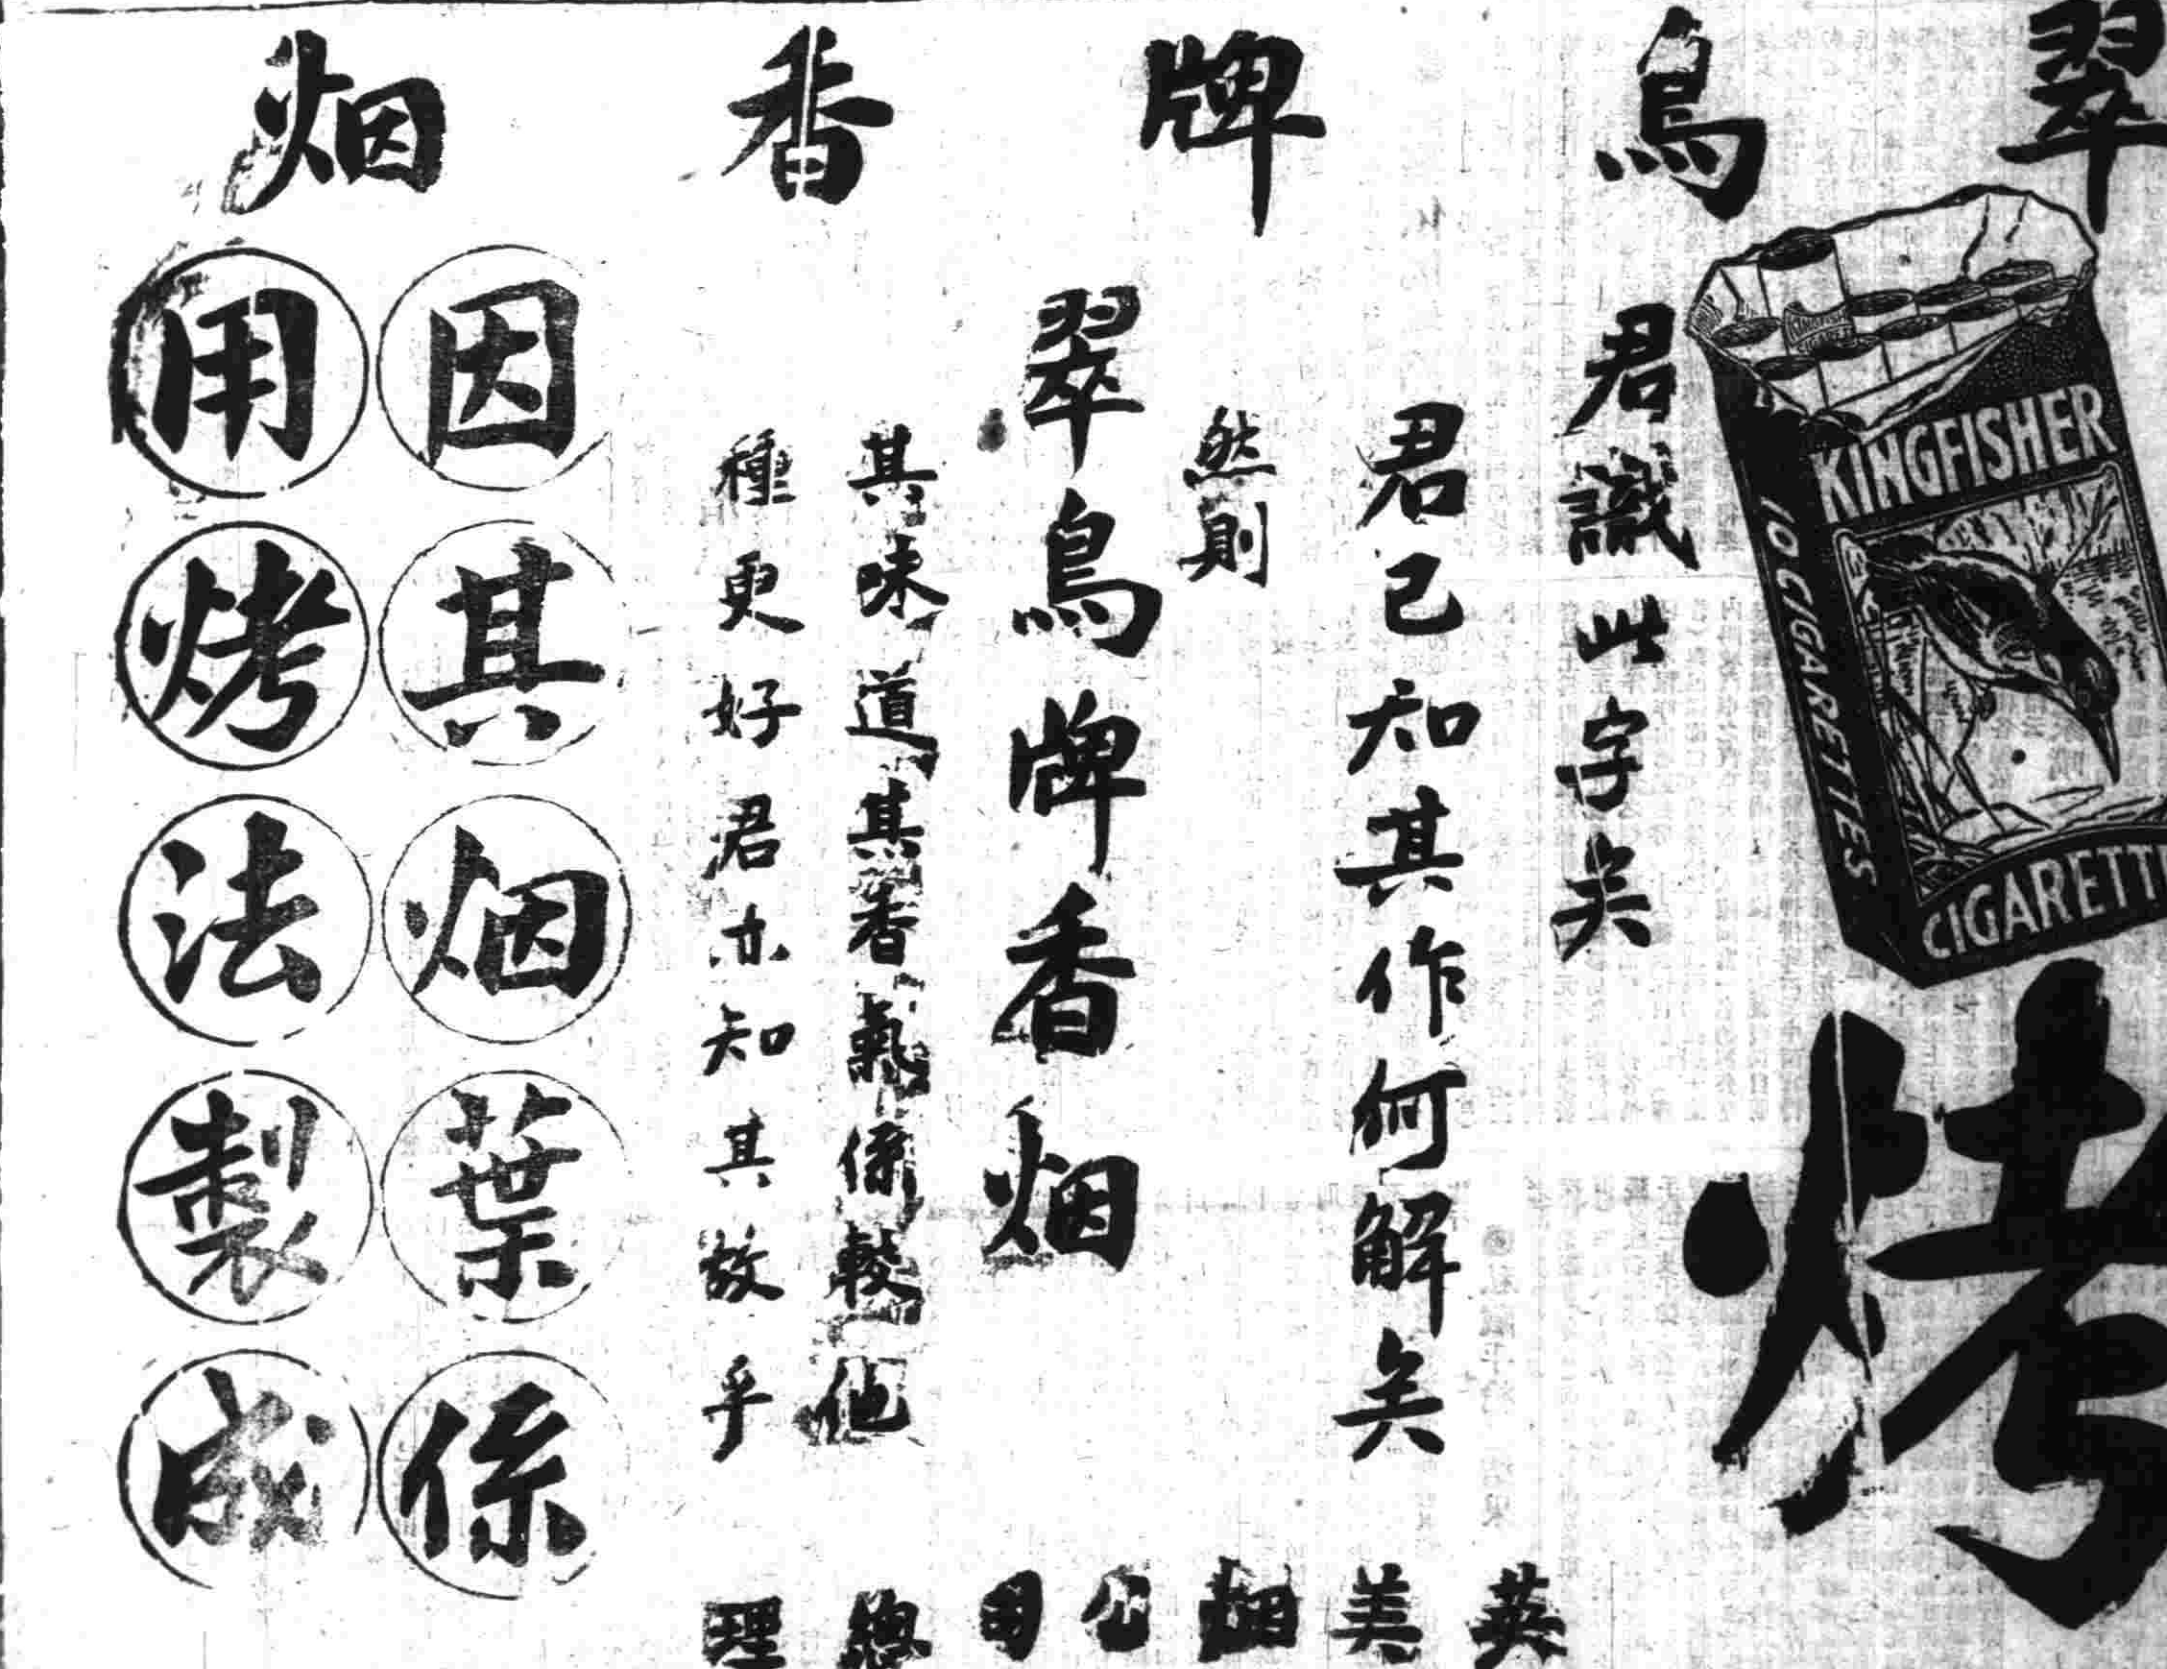 翠鳥牌香烟
KINGFISHER
10 CIGARETTES
CIGARETT
烤
君識此字矣
君已知其作何解矣
然則
翠鳥牌香烟
其味道其香氣係較他
種更好君亦知其故乎
因其烟葉係
用烤法製成
英美烟公司總理